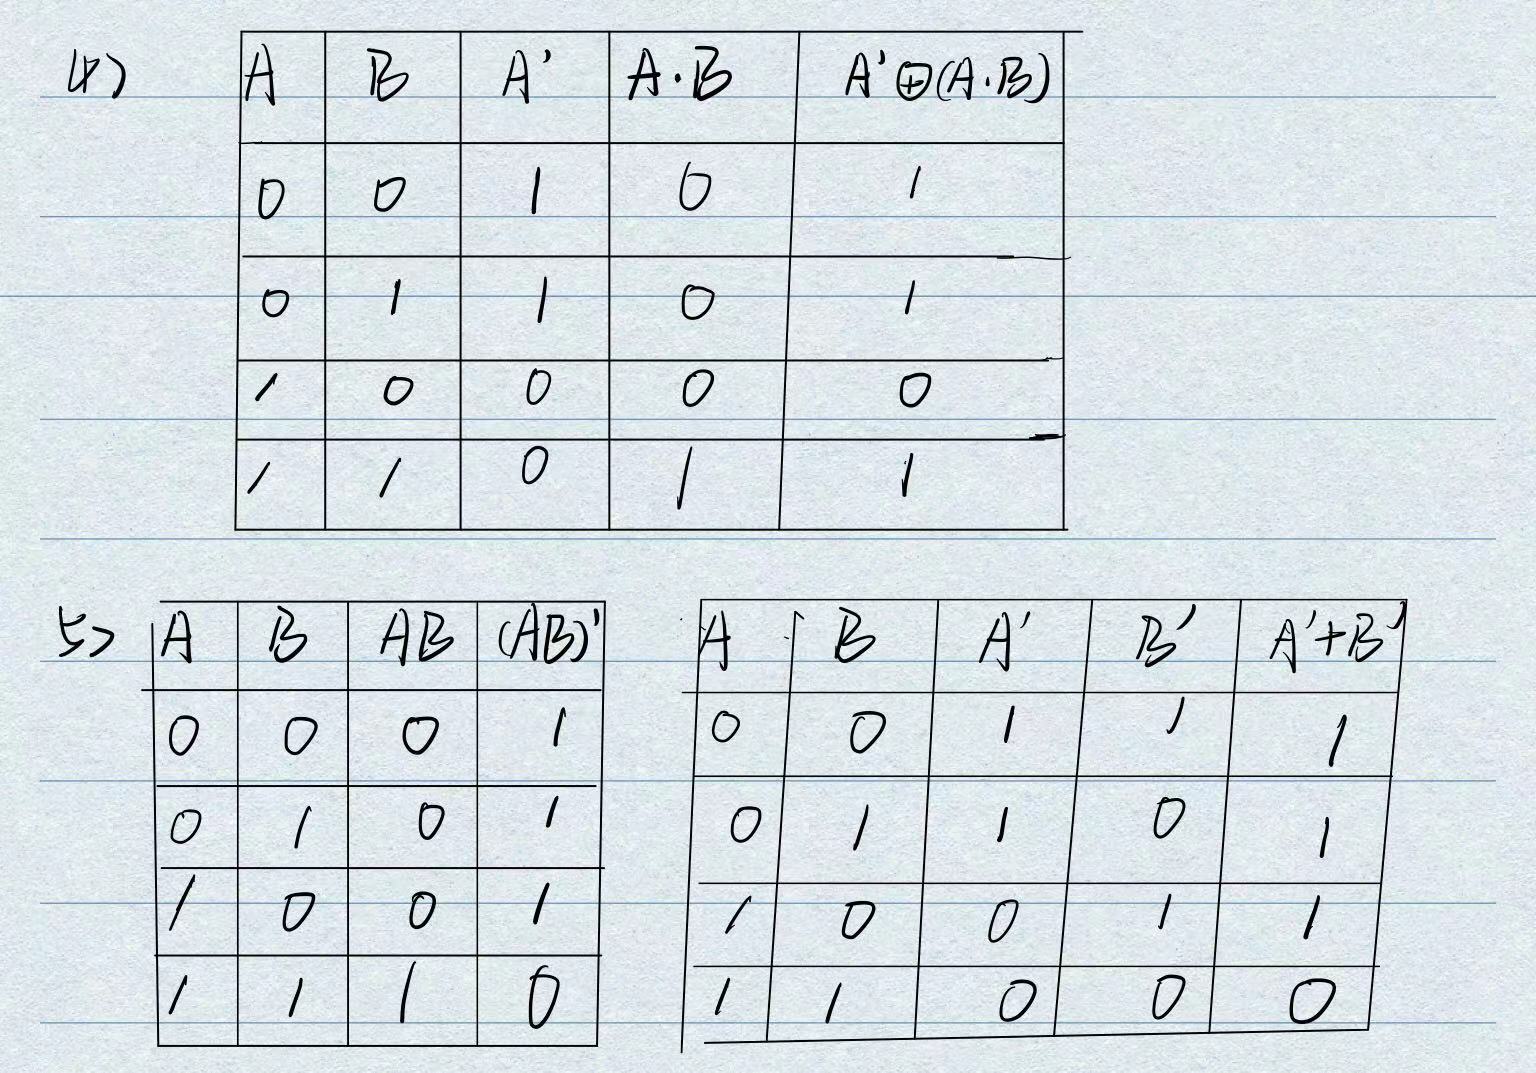 4) A B A' A·B A'⊕(A·B)
0 0 1 0 1
0 1 1 0 1
1 0 0 0 0
1 1 0 1 1
5) A B AB (AB)'
0 0 0 1
0 1 0 1
1 0 0 1
1 1 1 0
A B A' B' A'+B'
0 0 1 1 1
0 1 1 0 1
1 0 0 1 1
1 1 0 0 0